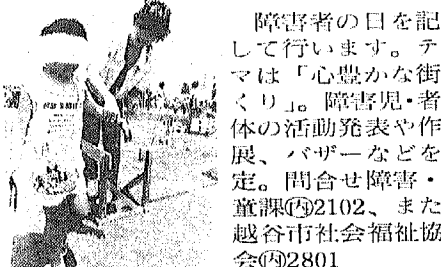 障害者の日を記
して行います。テ
マは「心豊かな街
くり」。障害児・者
体の活動発表や作
展、バザーなどを
定。問合せ障害・
童課㈹2102、また
越谷市社会福祉協
会㈹2801